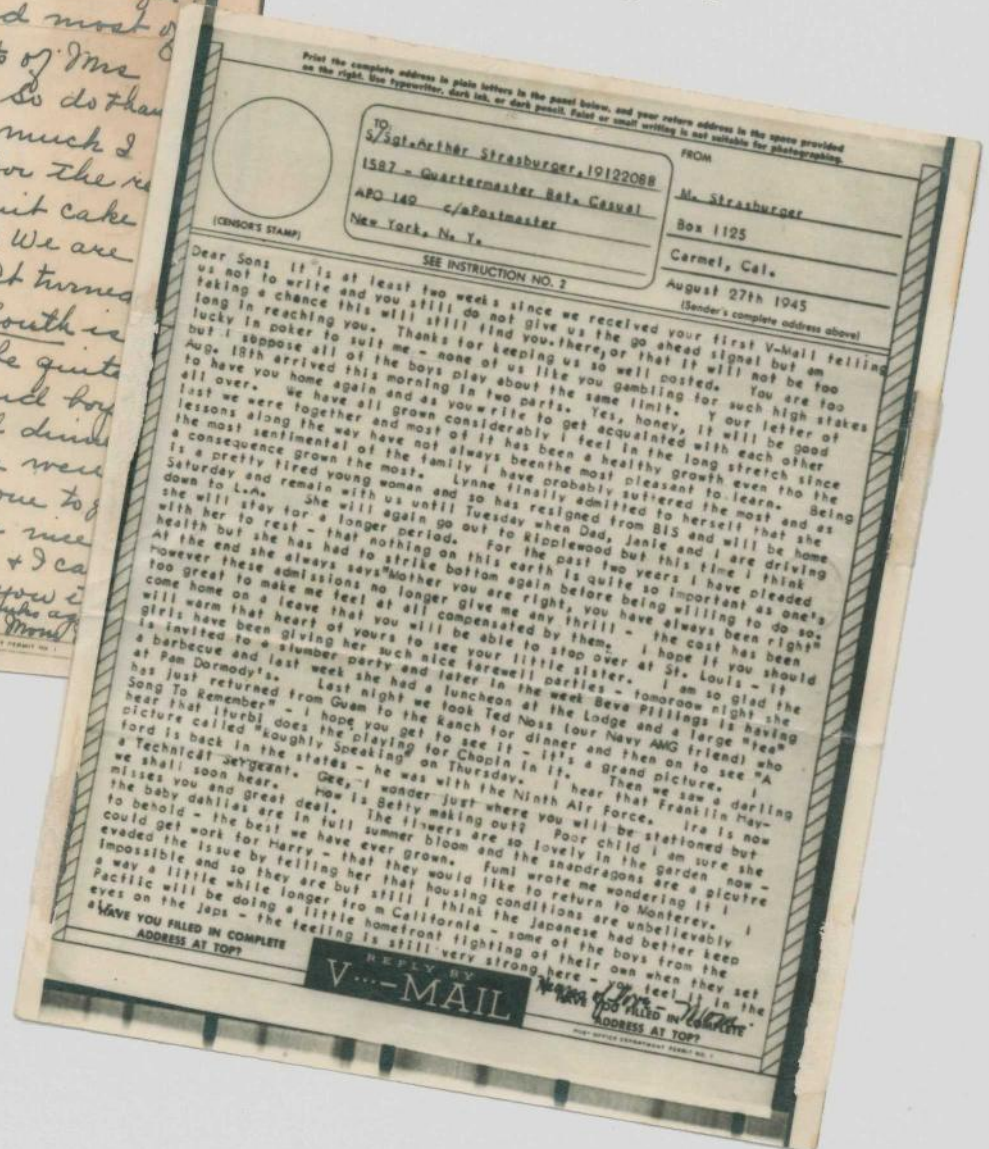 d most of
s of Mrs
So do than
much I
or the re
uit cake
We are
It turned
outh is
be quite
nd boy
dinne
were
ome to g
nice
+ I ca
you i
Mom
PERMIT NO. 1
Print the complete address in plain letters in the panel below, and your return address in the space provided
on the right. Use typewriter, dark ink, or dark pencil. Faint or small writing is not suitable for photographing.
(CENSOR'S STAMP)
TO:
S/Sgt. Arthur Strasburger, 19122088
1587 - Quartermaster Bat. Casual
APO 149 c/o Postmaster
New York, N. Y.
SEE INSTRUCTION NO. 2
FROM
M. Strasburger
Box 1125
Carmel, Cal.
August 27th 1945
(Sender's complete address above)
Dear Son: It is at least two weeks since we received your first V-Mail telling
us not to write and you still do not give us the go ahead signal but am
taking a chance this will still find you.there,or that it will not be too
long in reaching you. Thanks for keeping us so well posted. You are too
lucky in poker to suit me - none of us like you gambling for such high stakes
but i suppose all of the boys play about the same limit. Y our letter of
Aug. 18th arrived this morning in two parts. Yes, honey, it will be good
to have you home again and as you write to get acquainted with each other
all over. We have all grown considerably i feel in the long stretch since
last we were together and most of it has been a healthy growth even tho the
lessons along the way have not always beenthe most pleasant to learn. Being
the most sentimental of the family i have probably suffered the most and as
a consequence grown the most. Lynne finally admitted to herself that she
is a pretty tired young woman and so has resigned from BIS and will be home
Saturday and remain with us until Tuesday when Dad, Janie and i are driving
down to L.A. She will again go out to Ripplewood but this time i think
she will stay for a longer period. For the past two years i have pleaded
with her to rest - that nothing on this earth is quite so important as one's
health but she has had to strike bottom again before being willing to do so.
At the end she always says"Mother you are right, you have always been right"
However these admissions no longer give me any thrill - the cost has been
too great to make me feel at all compensated by them. I hope if you should
come home on a leave that you will be able to stop over at St. Louis - it
will warm that heart of yours to see your little sister. i am so glad the
girls have been giving her such nice farewell parties - tomoroow night she
is invited to a slumber party and later in the week Beva Pillings is having
a barbecue and last week she had a luncheon at the Lodge and a large "tea"
at Pam Dormody's. Last night we took Ted Noss (our Navy AMG friend) who
has just returned from Guam to the Ranch for dinner and then on to see "A
Song To Remember" - i hope you get to see it - it's a grand picture. i
hear that Iturbi does the playing for Chopin in it. Then we saw a darling
picture called "Roughly Speaking" on Thursday. I hear that Franklin Hay-
ford is back in the states - he was with the Ninth Air Force. Ira is now
a Technical Sergeant. Gee, i wonder just where you will be stationed but
we shall soon hear. How is Betty making out? Poor child i am sure she
misses you and great deal. The flowers are so lovely in the garden now -
the baby dahlias are in full summer bloom and the snapdragons are a picutre
to behold - the best we have ever grown. Fumi wrote me wondering if i
could get work for Harry - that they would like to return to Monterey. i
evaded the issue by telling her that housing conditions are unbelievably
impossible and so they are but still i think the Japanese had better keep
a way a little while longer fro m California - some of the boys from the
Pacific will be doing a little homefront fighting of their own when they set
eyes on the Japs - the feeling is still very strong here - you feel it in the
HAVE YOU FILLED IN COMPLETE
ADDRESS AT TOP?
REPLY BY
V···—MAIL
of Love - Mom.
HAVE YOU FILLED IN COMPLETE
ADDRESS AT TOP?
POST OFFICE DEPARTMENT PERMIT NO. 1